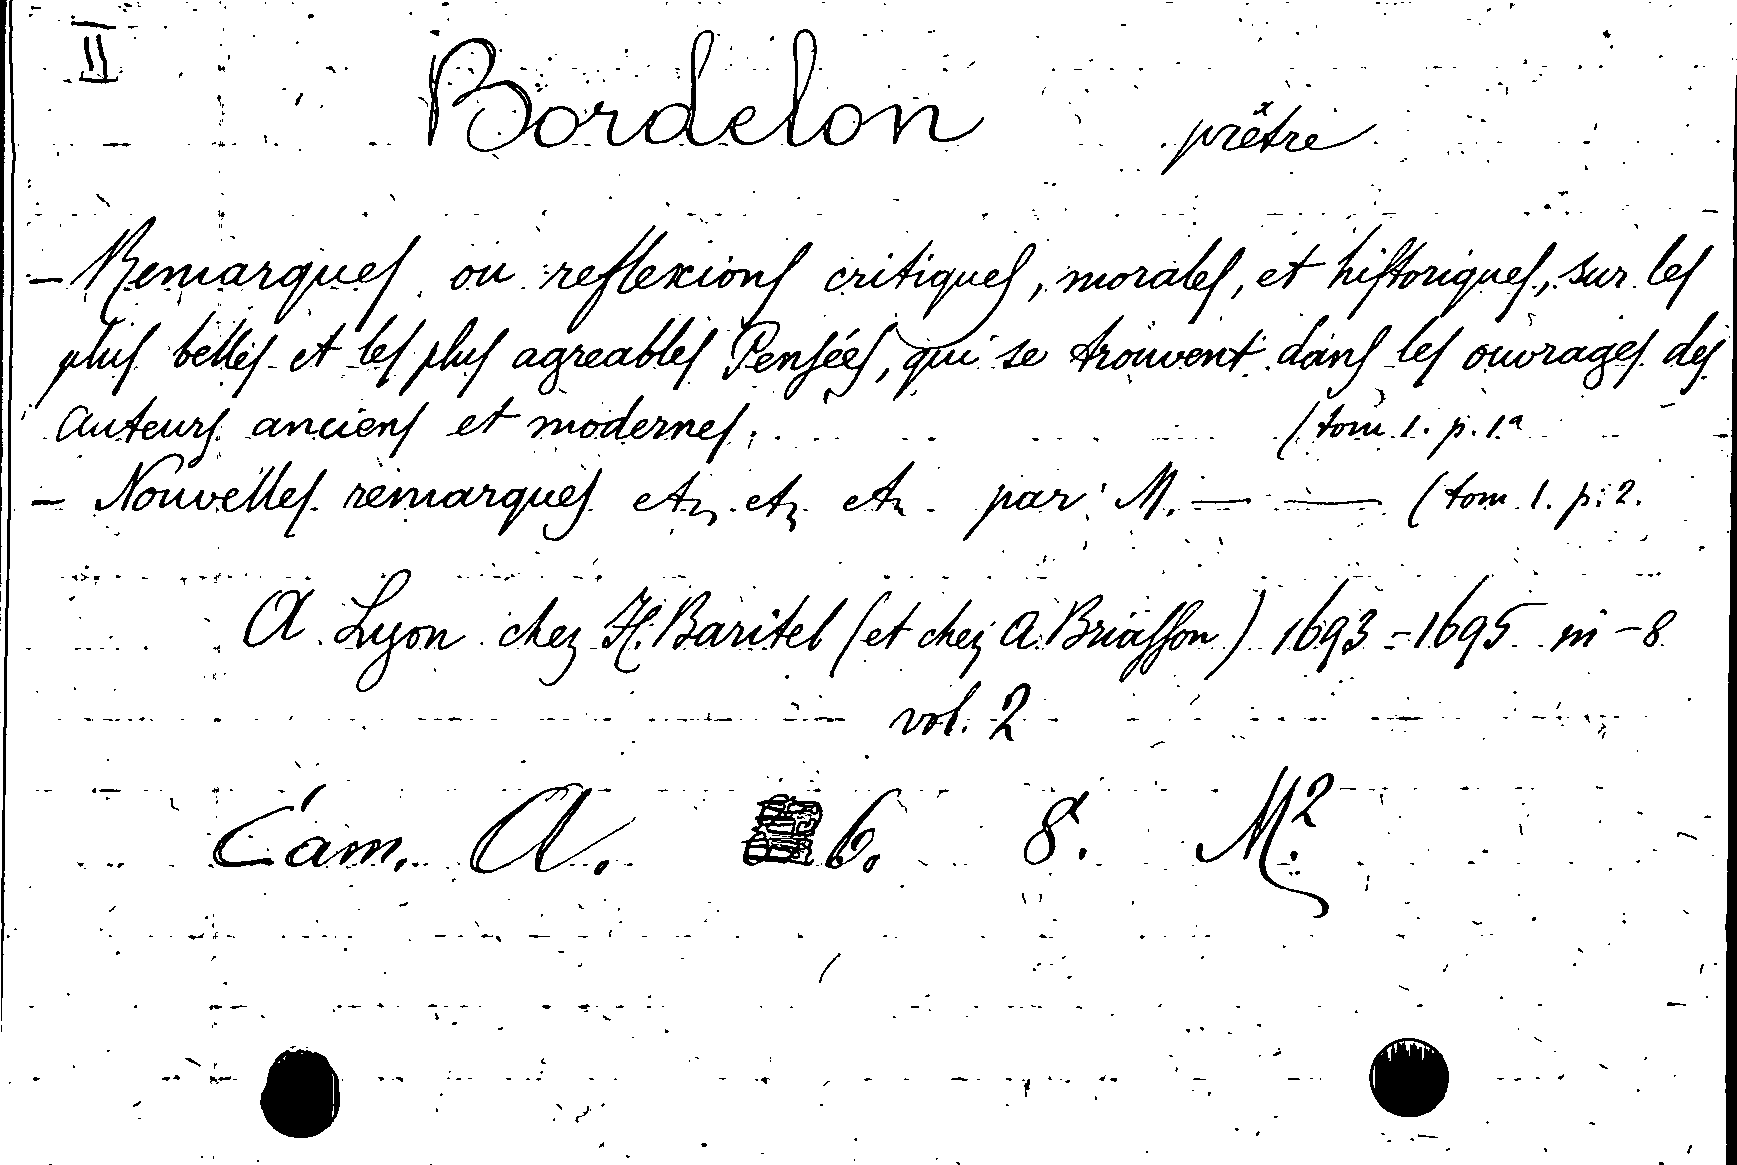 II
Bordelon prêtre
- Remarques ou reflexions critiques, morales, et historiques, sur les
plus belles et les plus agreables Pensées, qui se trouvent dans les ouvrages des
auteurs anciens et modernes. (tom 1. p. 1ª
- Nouvelles remarques etz etz etz par M. — — (tom 1. p. 2.
A Lyon chez H. Baritel (et chez A. Briasson) 1693-1695 in-8
vol. 2
Cam. A. 6. 8. M.²